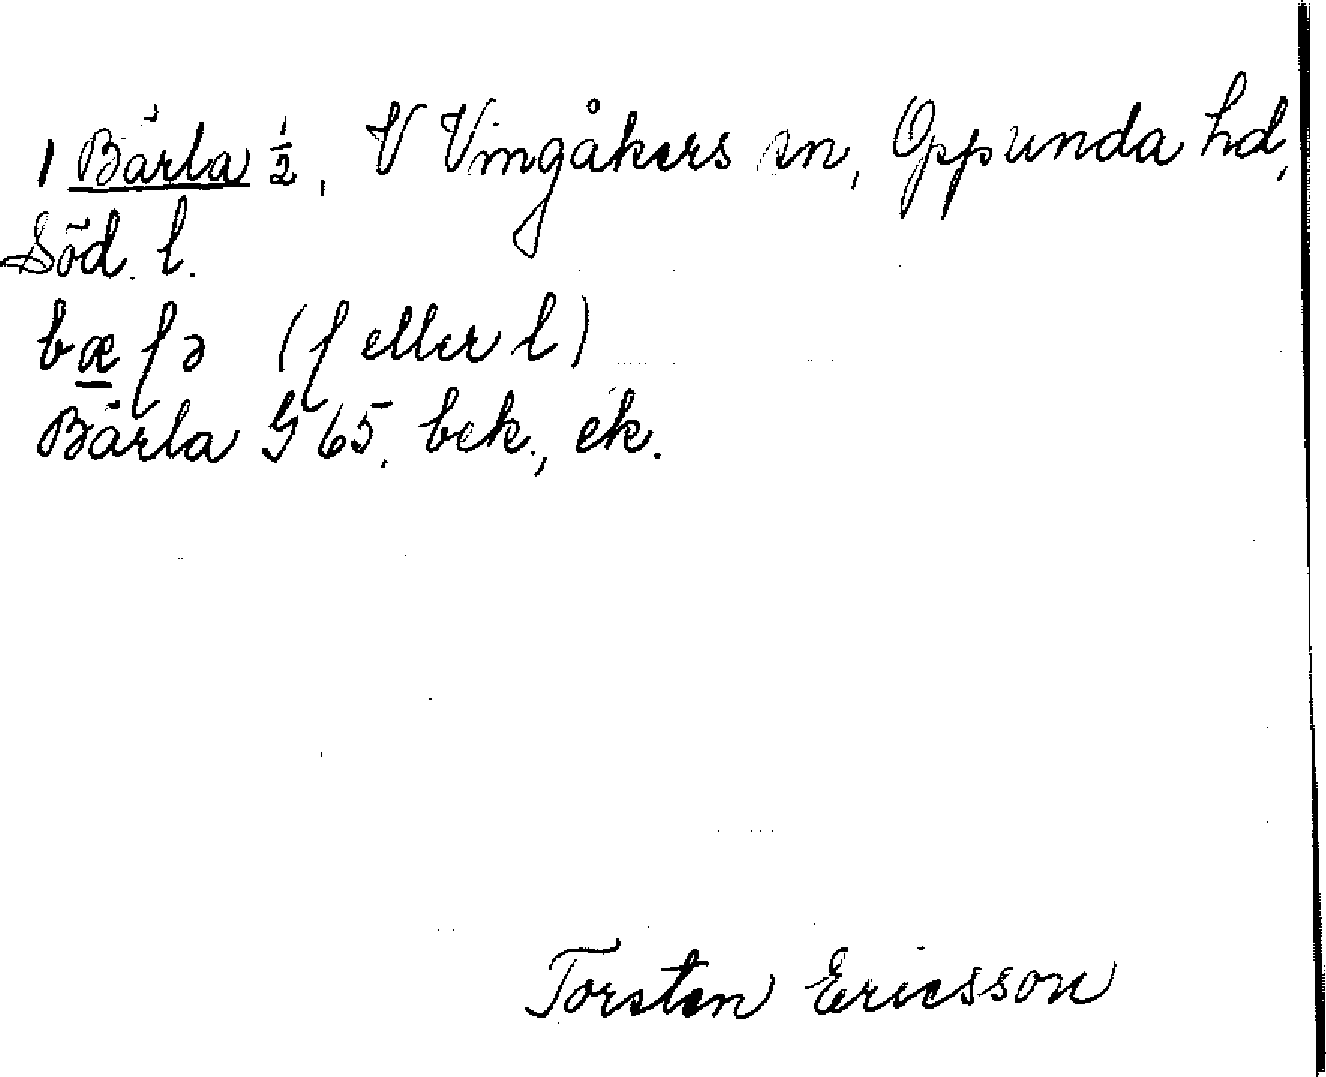 1 Bärla ½, V Vingåkers sn, Oppunda hd,
Söd. l.
bæɭə (ɭ eller l)
Bärla G 65. bek., ek.
Torsten Ericsson